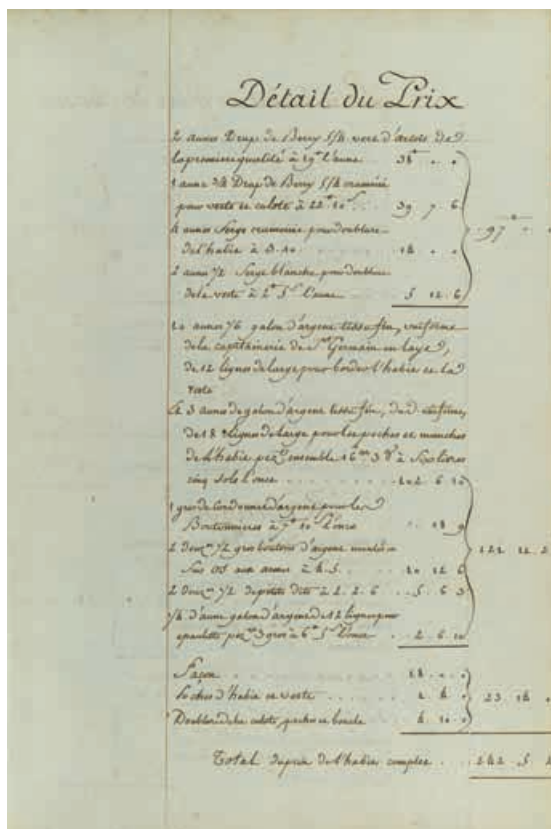 Détail du Prix
2 aunes Drap de Berry 5/4 vert d'artois de
la premiere qualité à 19# l'aune 38# . .
1 aune 3/4 Drap de Berry 5/4 cramoisi
pour veste et culote à 22# 10s 39 7 6
4 aunes Serge cramoisie pour doublure
de l'habit à 3.10 14 . .
2 aunes 1/2 Serge blanche pour doublure
de la veste à 2# 5s l'aune 5 12 6
97# . .
10 aunes 1/6 galon d'argent tissé fin, uniforme
de la capitainerie de St Germain en laye,
de 12 lignes de large pour border l'habit et la
veste
Et 3 aunes de galon d'argent tissé fin, de d. uniforme,
de 18 lignes de large pour les poches et manches
de l'habit ensemble 16 on 3 g à Six livres
cinq sols l'once 102 6 10
1 gros de Cordonnet d'argent pour les
Boutonnieres à 7# 10 l'once . 18 9
2 douz. 1/2 gros boutons d'argent
sur os aux armes à 4.5. 10 12 6
2 Douz. 1/2 de petits dito à 2.2.6 5 6 3
d'aune galon d'argent de 12 lignes pour
epaulette 3 gros à 6# 5s l'once 2 6 10
121 11 2
Façon
Poches d'habit et veste 2 4 .
Doublure de culote, poches et boucle 4 10 .
23 14 .
Total du prix de l'habit complet 242 5